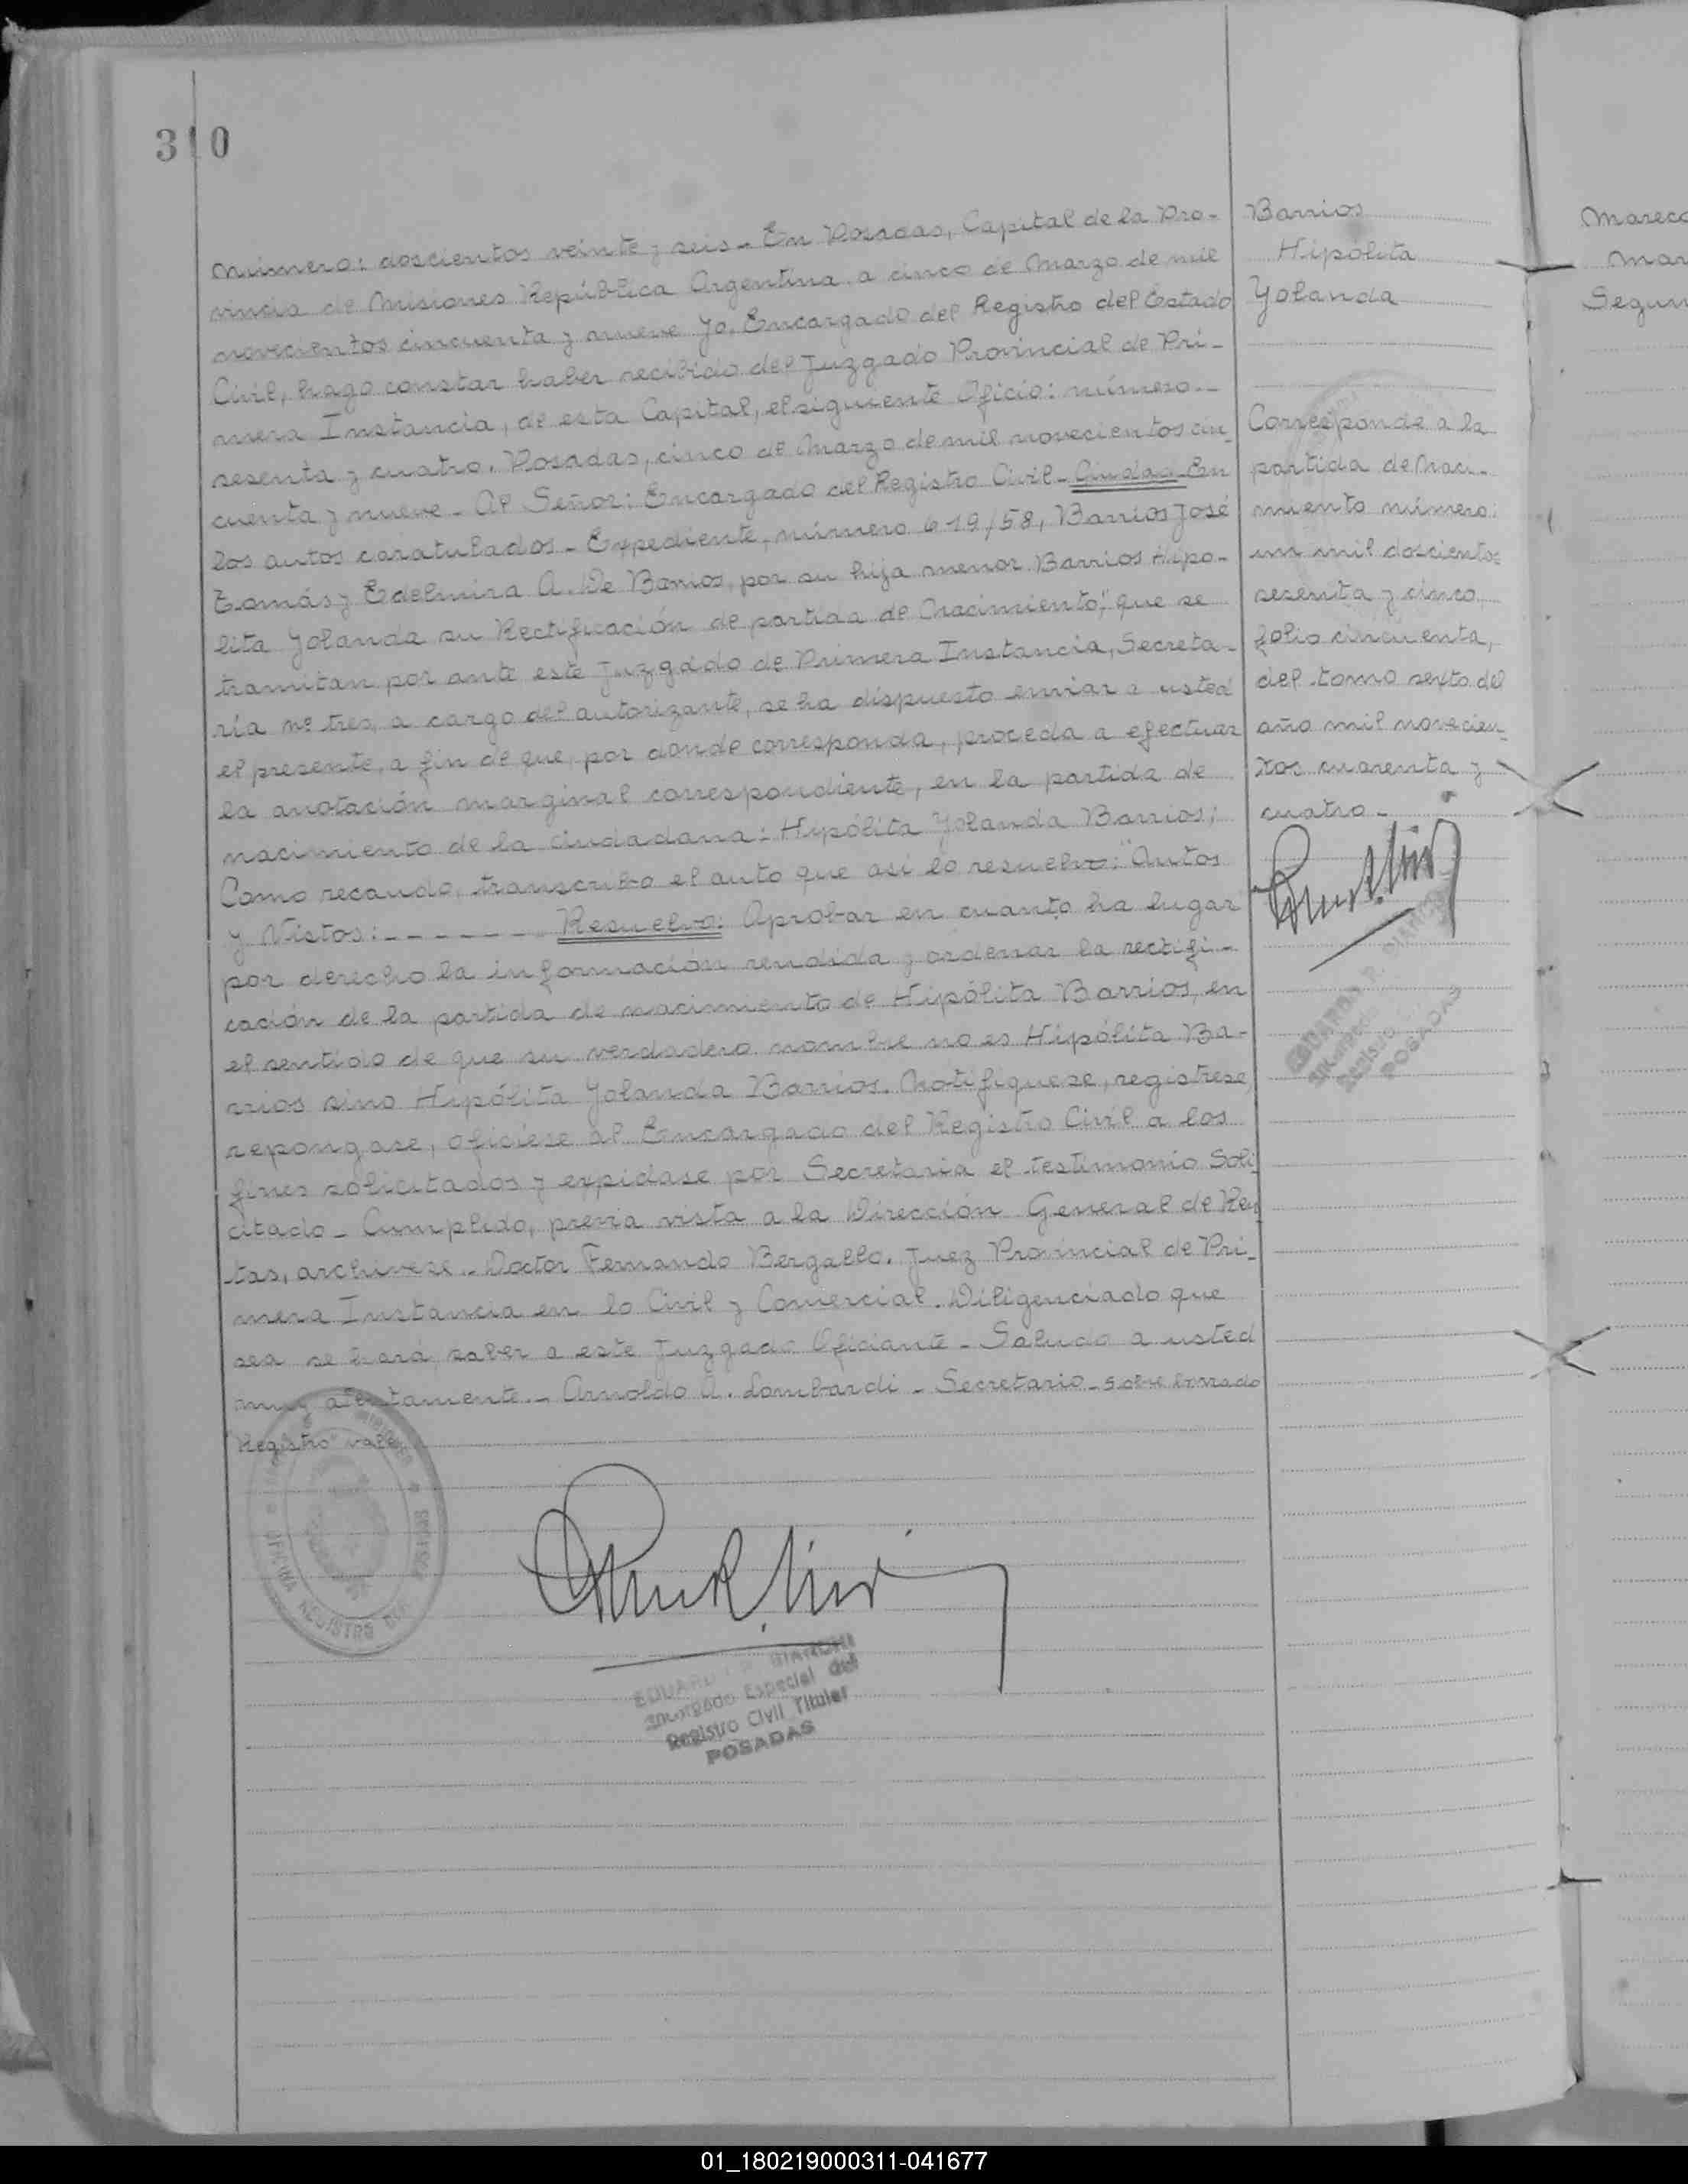 310
número: doscientos veinte y seis - En Posadas, Capital de la Pro-
vincia de Misiones República Argentina a cinco de Marzo de mil
novecientos cincuenta y nueve Yo, Encargado del Registro del Estado
Civil, hago constar haber recibido del Juzgado Provincial de Pri-
mera Instancia, de esta Capital, el siguiente Oficio: número.-
sesenta y cuatro. Posadas, cinco de Marzo de mil novecientos cin-
cuenta y nueve - Al Señor: Encargado del Registro Civil - Ciudad - En
los autos caratulados - Expediente, número 619/58, Barrios José
Tomás y Edelmira A. De Barrios, por su hija menor Barrios Hipó-
lita Yolanda su Rectificación de partida de Nacimiento", que se
tramitan por ante este Juzgado de Primera Instancia, Secreta-
ría nº tres, a cargo del autorizante, se ha dispuesto enviar a usted
el presente, a fin de que, por donde corresponda, proceda a efectuar
la anotación marginal correspondiente, en la partida de
nacimiento de la ciudadana: Hipólita Yolanda Barrios;
Como recaudo, transcribo el auto que así lo resuelve: "Autos
y Vistos: - - - - - - - - Resuelvo: Aprobar en cuanto ha lugar
por derecho la información rendida y ordenar la rectifi-
cación de la partida de nacimiento de Hipólita Barrios, en
el sentido de que su verdadero nombre no es Hipólita Ba-
rrios sino Hipólita Yolanda Barrios. Notifíquese, regístrese,
repóngase, ofíciese al Encargado del Registro Civil a los
fines solicitados y expídase por Secretaría el testimonio Soli-
citado - Cumplido, previa vista a la Dirección General de Ren-
tas, archívese.- Doctor Fernando Bergallo. Juez Provincial de Pri-
mera Instancia en lo Civil y Comercial. Diligenciado que
sea se hará saber a este Juzgado Oficiante - Saludo a usted
muy atentamente.- Arnoldo A. Lombardi - Secretario - Sobre borrado
"Registro" vale.
OFICINA REGISTRO
EDUARDO BIANCHI
Encargado Especial del
Registro Civil Titular
POSADAS
Barrios
Hipólita
Yolanda
Corresponde a la
partida de Naci-
miento número:
un mil doscientos
sesenta y cinco
folio cincuenta,
del tomo sexto del
año mil novecien-
tos cuarenta y
cuatro -
EDUARDO R.
Encargado
Registro
POSADAS
Mar
Segun
01_180219000311-041677